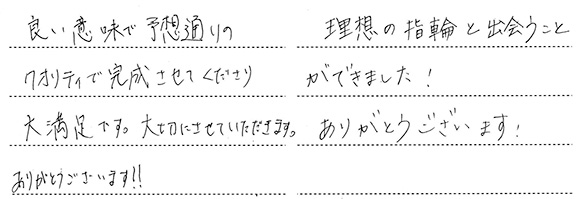 良い意味で予想通りの
クオリティで完成させてくださり
大満足です。大切にさせていただきます。
ありがとうございます!!
理想の指輪と出会うこと
ができました!
ありがとうございます!